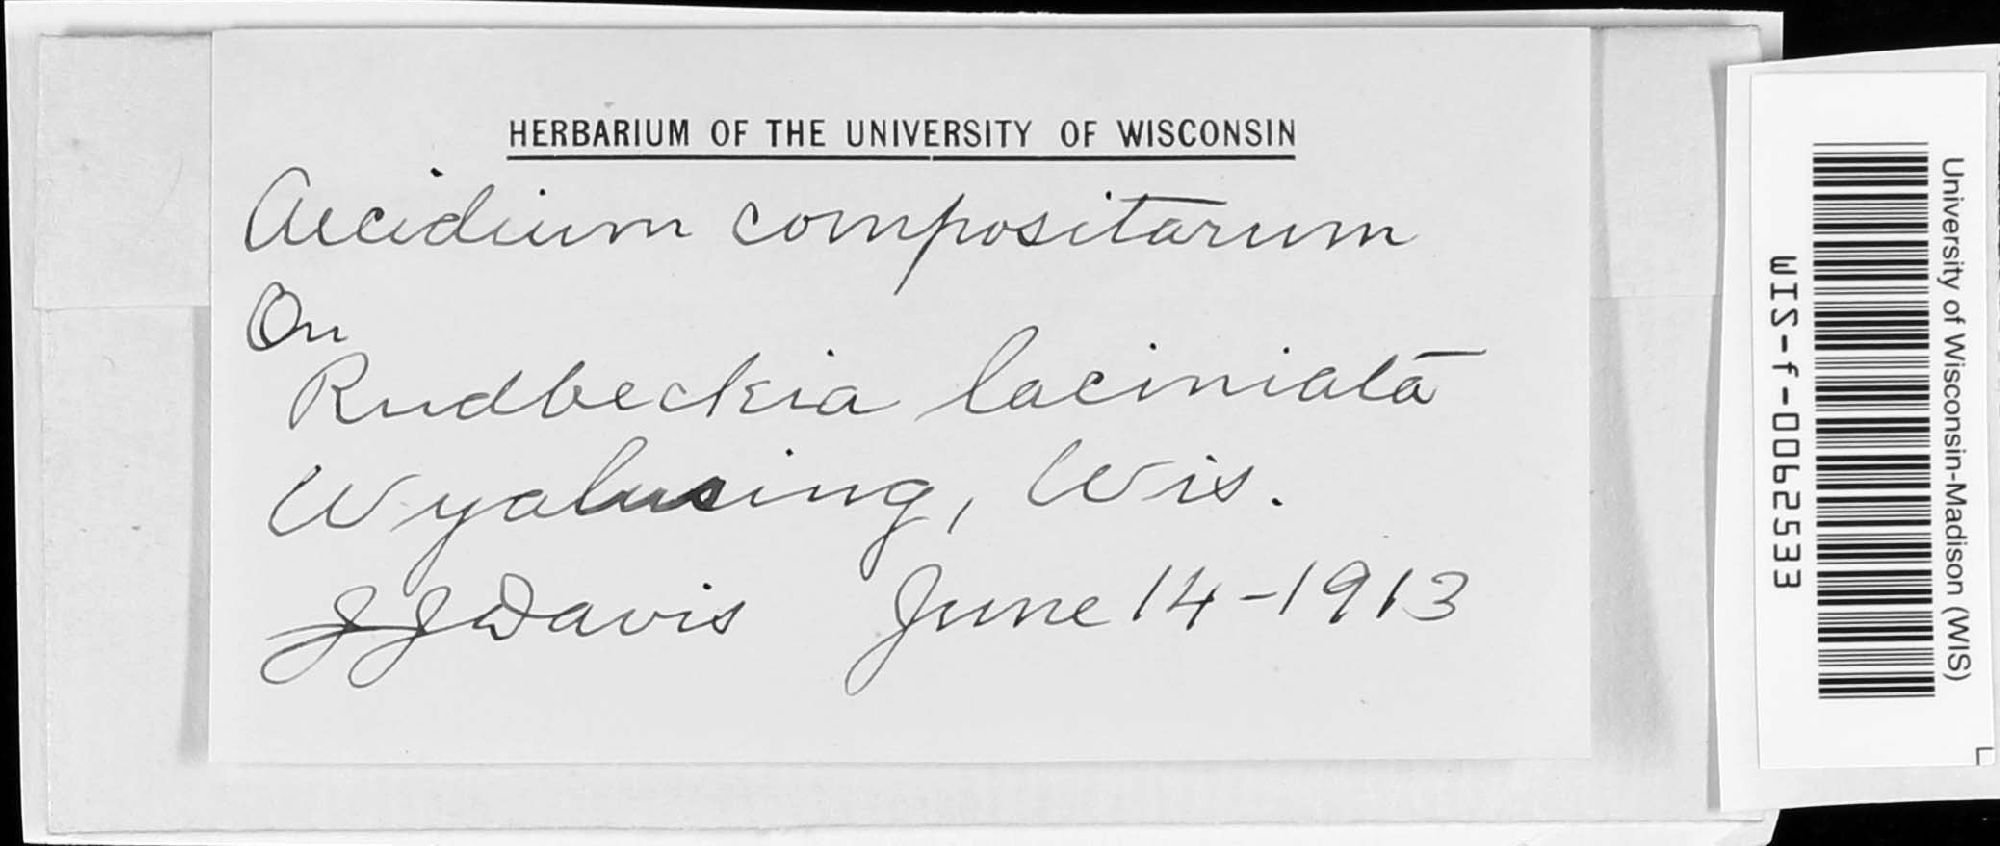 HERBARIUM OF THE UNIVERSITY OF WISCONSIN
Aecidium compositarum
On
Rudbeckia laciniata
Wyalusing, Wis.
J J Davis June 14-1913
University of Wisconsin-Madison (WIS)
WIS-f-0062533